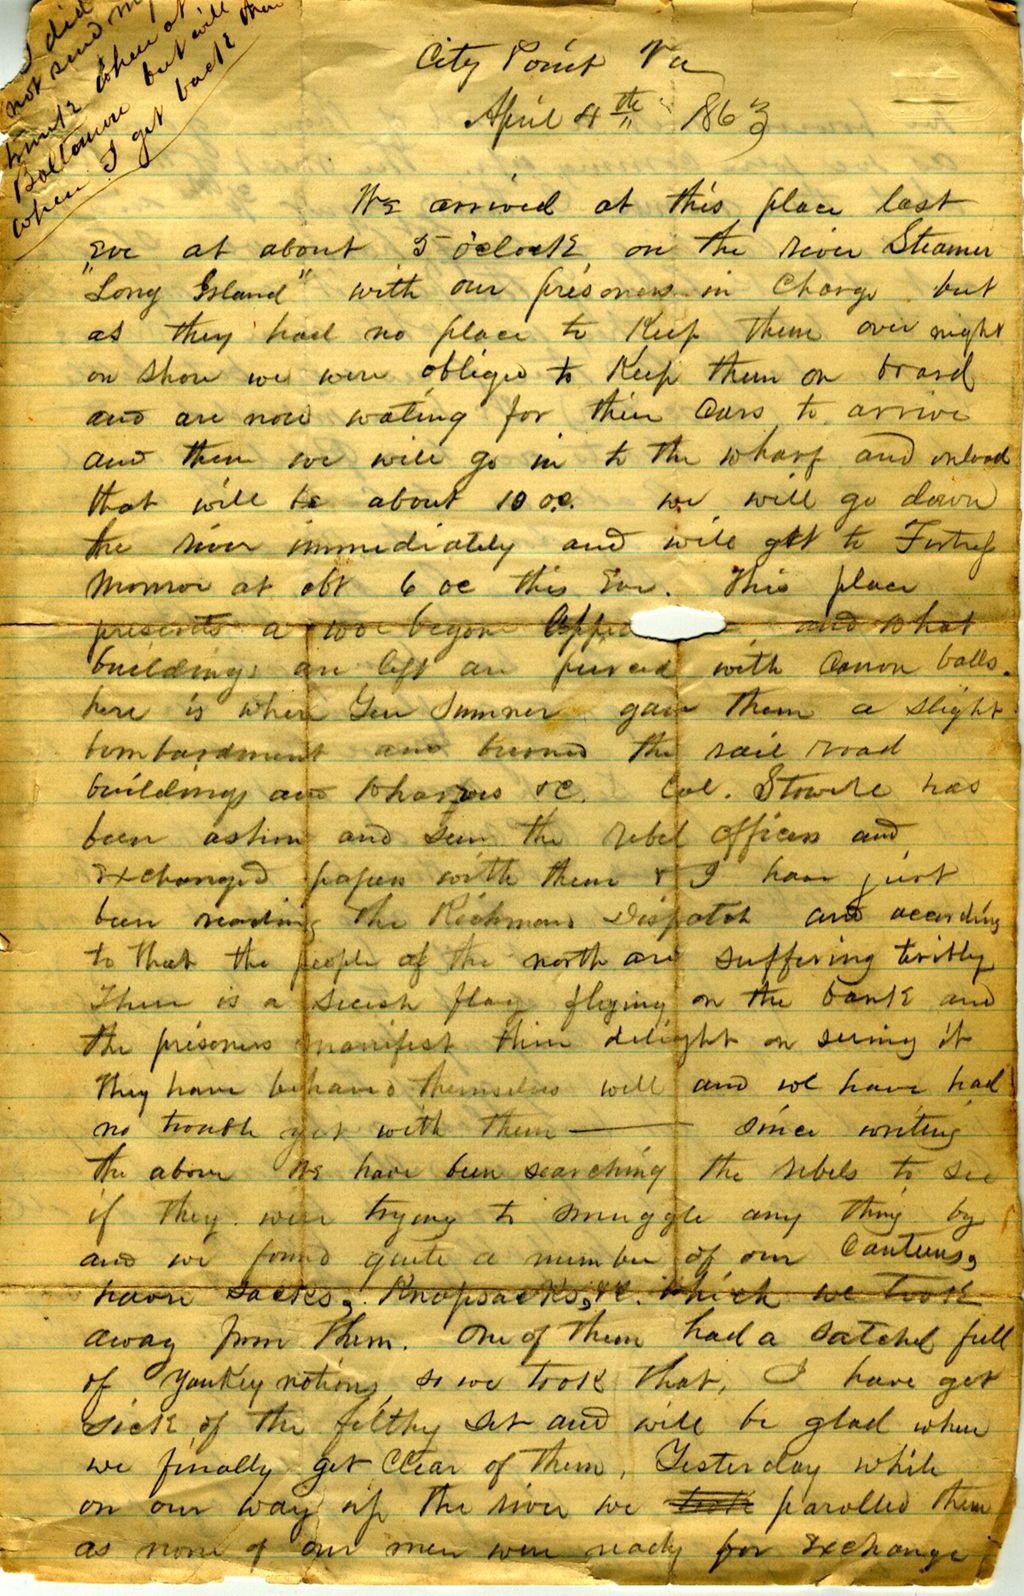 I did
not send my
trunk when at
Boltomore but will then
when I get back
City Point Va
April 4th 1863
We arrived at this place last
Eve at about 5 oclock on the river Steamer
"Long Island" with our prisoners in Charge but
as they had no place to Keep them over night
on shore we were obliged to Keep them on board
and are now wating for their Cars to arrive
and then we will go in to the wharf and unload
that will be about 10 oc. we will go down
the river immediately and will get to Fortress
Monroe at abt 6 oc this Eve. This place
presents a woe begon and what
buildings are left are pierced with Canon balls.
here is where Gen Sumner gave them a slight
bombardment and burned the rail road
buildings and Wharves &c. Col. Stowell has
been ashore and seen the rebel officers and
exchanged papers with them & I have just
been reading the Richmond Dispatch and according
to that the people of the north are suffering teribly
There is a secesh flag flying on the bank and
the prisoners manifest their delight on seeing it
They have behaved themselves well and we have had
no trouble yet with them — since writing
the above We have been searching the rebels to see
if they were trying to smuggle any thing by
and we found quite a number of our Canteens,
haver sacks, Knapsacks, &c. which we took
away from them. One of them had a satchel full
of Yankey notions so we took that. I have got
sick of the filthy set and will be glad when
we finally get Clear of them. Yesterday while
on our way up the river we took parolled them
as none of our men were ready for exchange